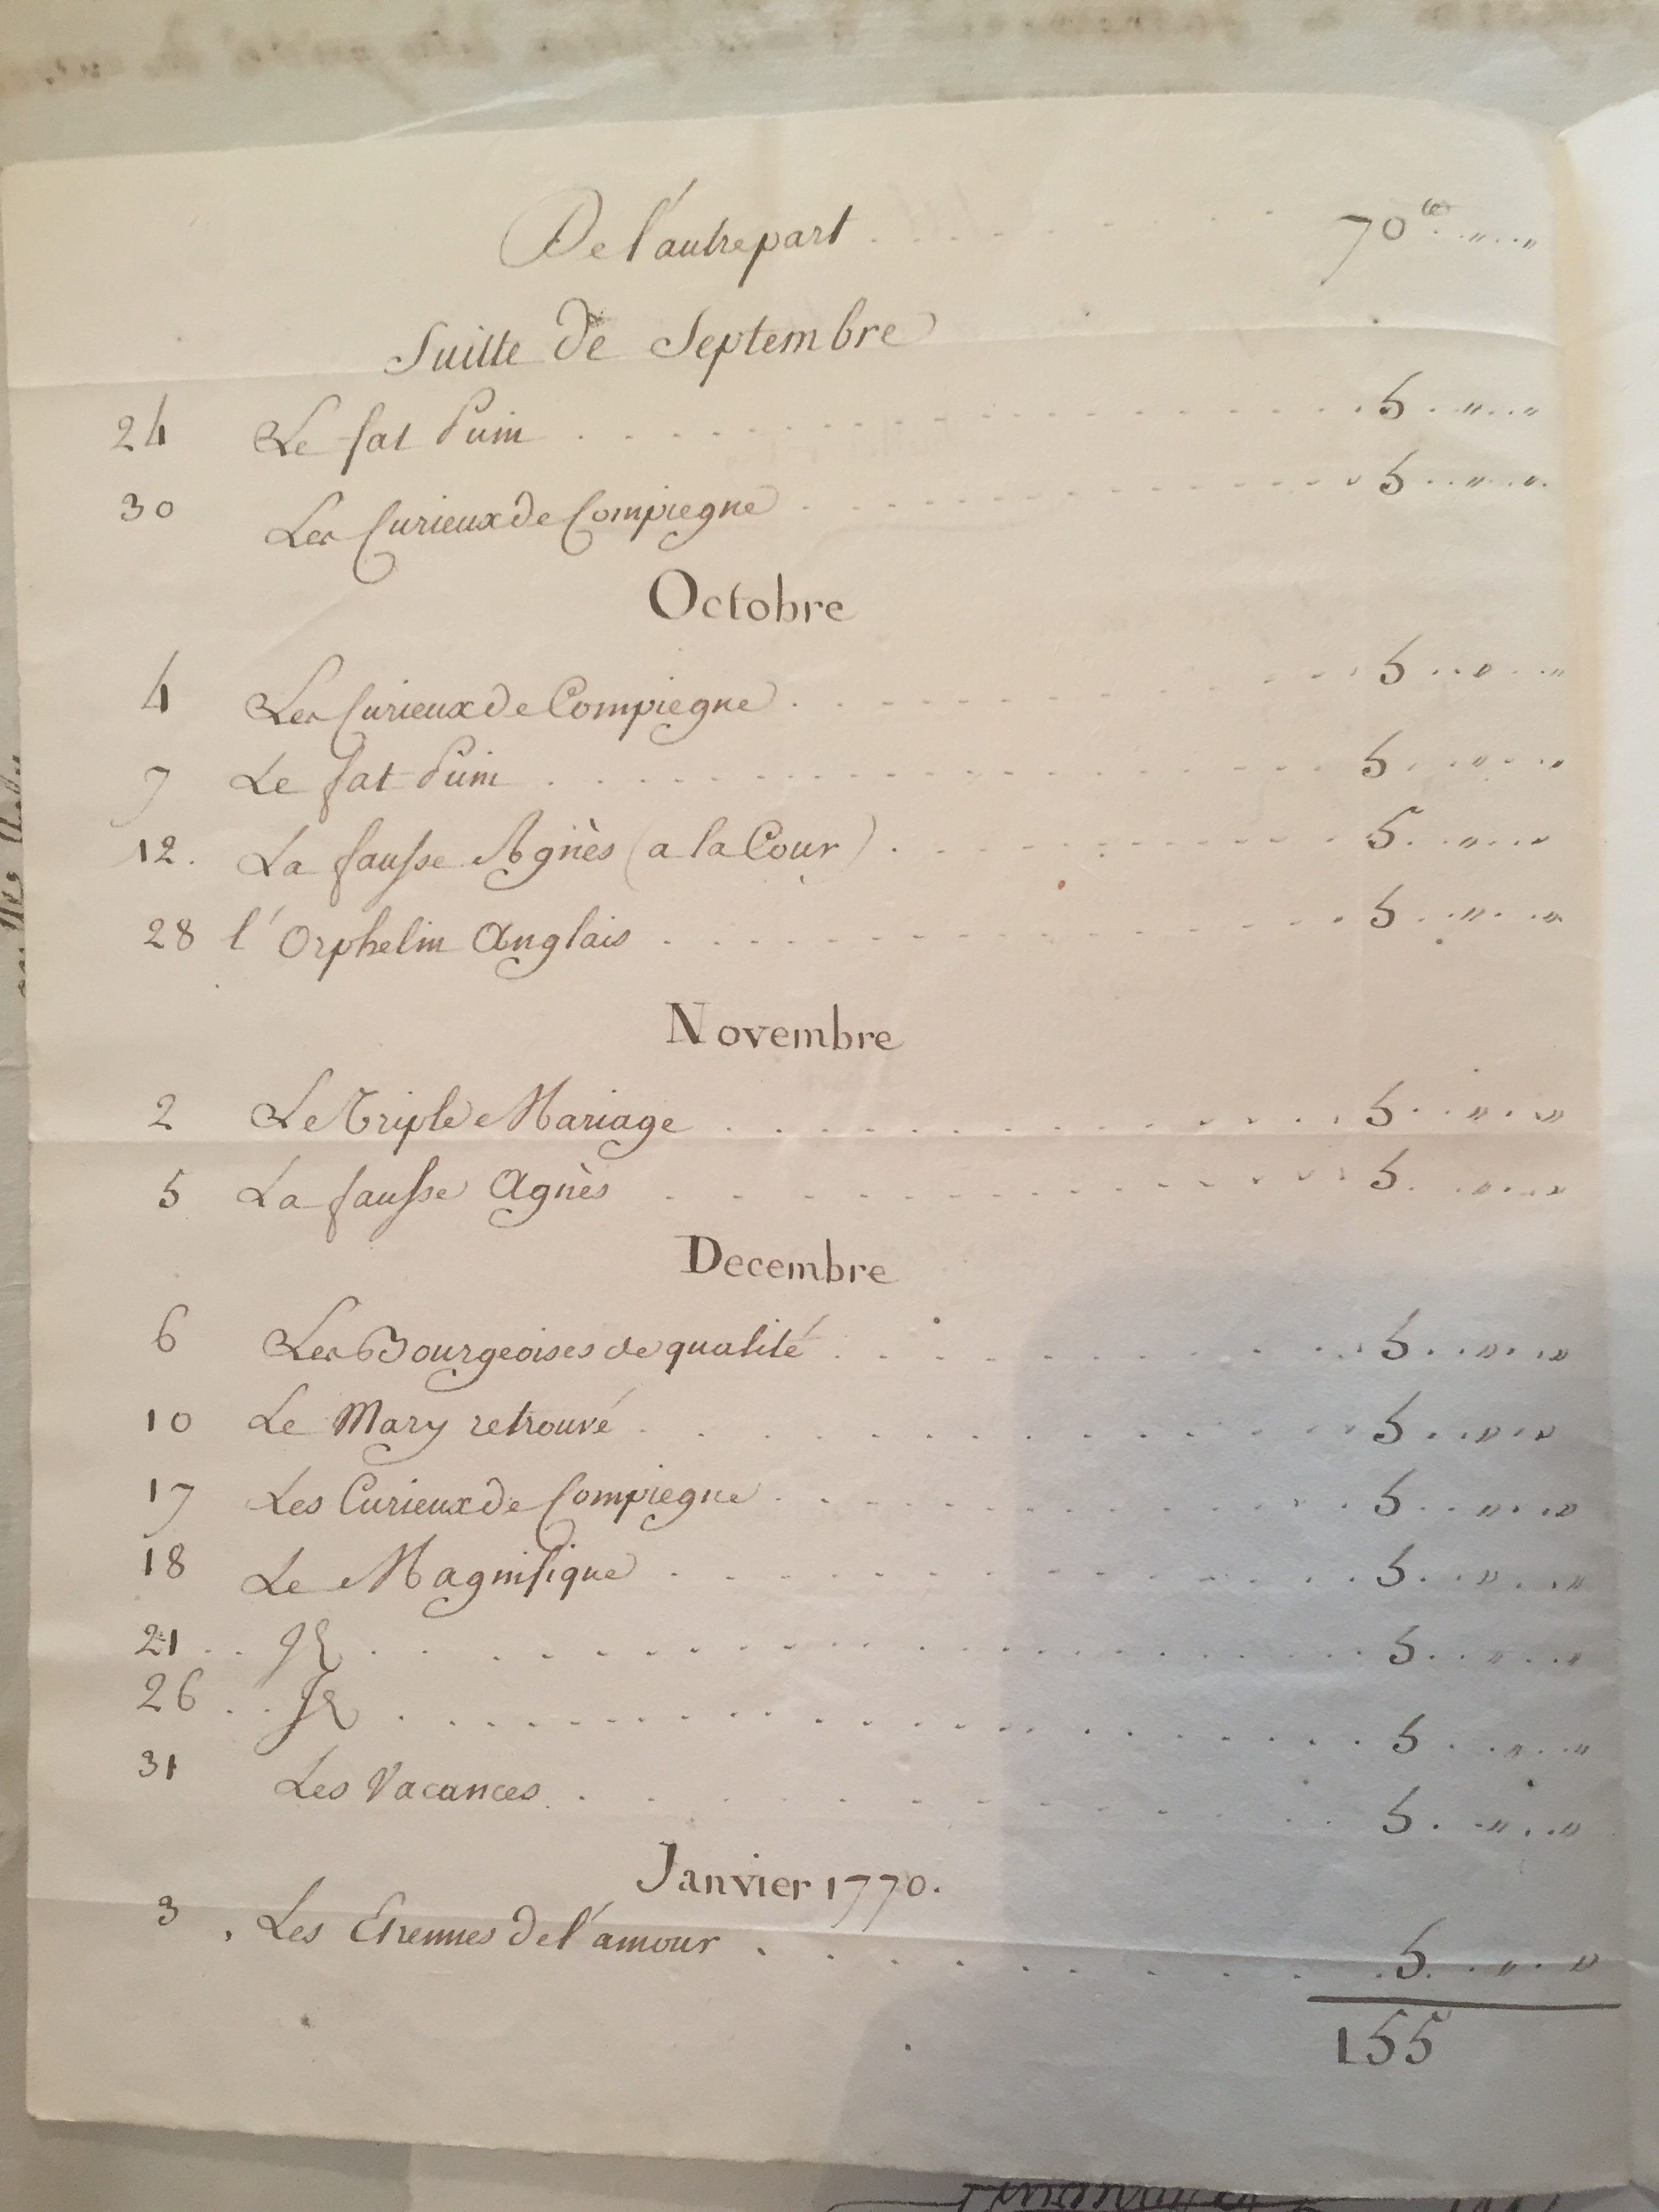 De l'autre part . . . . . . . . 70 ₶ . „ . . „
Suitte de Septembre
24 Le fat Puni . . . . . . . . 5 . „ . . „
30 Les Curieux de Compiegne . . . . . . . . 5 . . „ . . „
Octobre
4 Les Curieux de Compiegne . . . . . . . . 5 . . „ . . „
7 Le fat Puni . . . . . . . . 5 . . „ . . „
12. La fausse Agnès (a la Cour) . . . . . . . . 5 . . „ . . „
28 l'Orphelin Anglais . . . . . . . . 5 . . „ . . „
Novembre
2 Le Triple Mariage . . . . . . . . 5 . . „ . . „
5 La fausse Agnès . . . . . . . . 5 . . „ . . „
Decembre
6 Les Bourgeoises de qualité . . . . . . . . 5 . . „ . . „
10 Le Mary retrouvé . . . . . . . . 5 . . „ . . „
17 Les Curieux de Compiegne . . . . . . . . 5 . . „ . . „
18 Le Magnifique . . . . . . . . 5 . . „ . . „
21 . . . . . . . . . . 5 . . „ . . „
26 . . . . . . . . . . 5 . . „ . . „
31 Les Vacances . . . . . . . . 5 . . „ . . „
Janvier 1770.
3 . Les Etrennes de l'amour . . . . . . . . 5 . . „ . . „
155